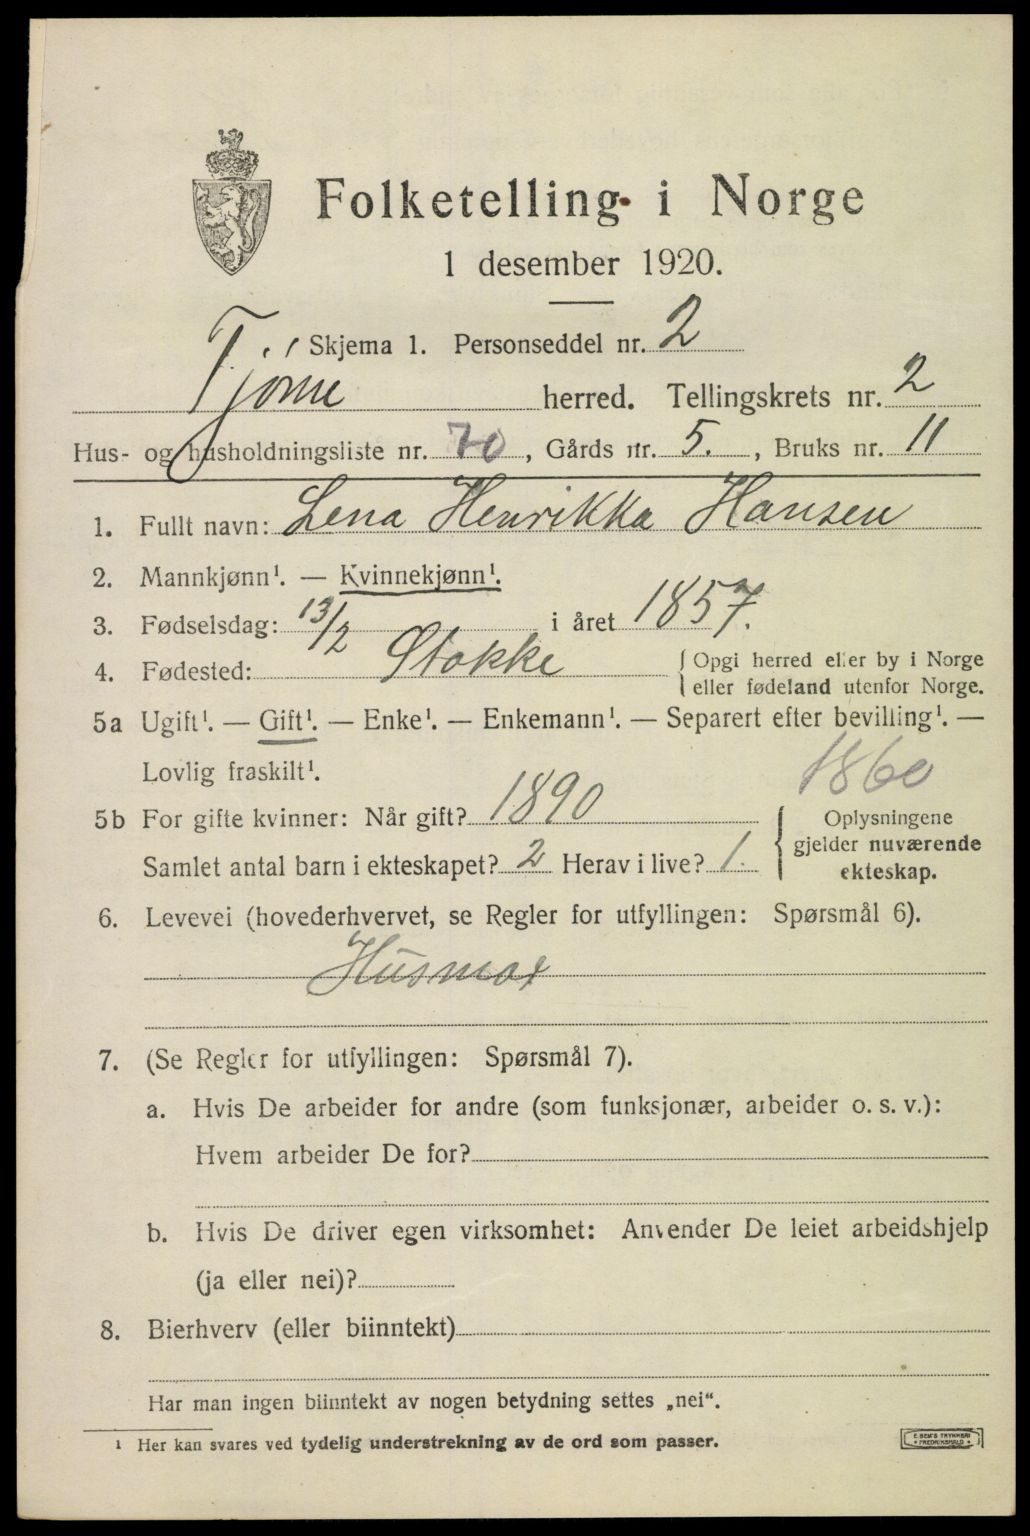 Folketelling i Norge
1 desember 1920.
Skjema 1. Personseddel nr. 2
Tjöme herred. Tellingskrets nr. 2
Hus- og husholdningsliste nr. 70, Gårds nr. 5., Bruks nr. 11
1. Fullt navn: Lena Henrikka Hansen
2. Mannkjønn¹. — Kvinnekjønn¹.
3. Fødselsdag: 13/2 i året 1857.
4. Fødested: Stokke { Opgi herred eller by i Norge
eller fødeland utenfor Norge.
5a Ugift¹. — Gift¹. — Enke¹. — Enkemann¹. — Separert efter bevilling¹. —
Lovlig fraskilt¹. 1860
5b For gifte kvinner: Når gift? 1890 { Oplysningene
gjelder nuværende
Samlet antal barn i ekteskapet? 2 Herav i live? 1. ekteskap.
6. Levevei (hovederhvervet, se Regler for utfyllingen: Spørsmål 6).
Husmor
7. (Se Regler for utfyllingen: Spørsmål 7).
a. Hvis De arbeider for andre (som funksjonær, arbeider o. s. v.):
Hvem arbeider De for?
b. Hvis De driver egen virksomhet: Anvender De leiet arbeidshjelp
(ja eller nei)?
8. Bierhverv (eller biinntekt)
Har man ingen biinntekt av nogen betydning settes „nei“.
¹ Her kan svares ved tydelig understrekning av de ord som passer.
E. SEM'S TRYKKERI
• FREDRIKSHALD •